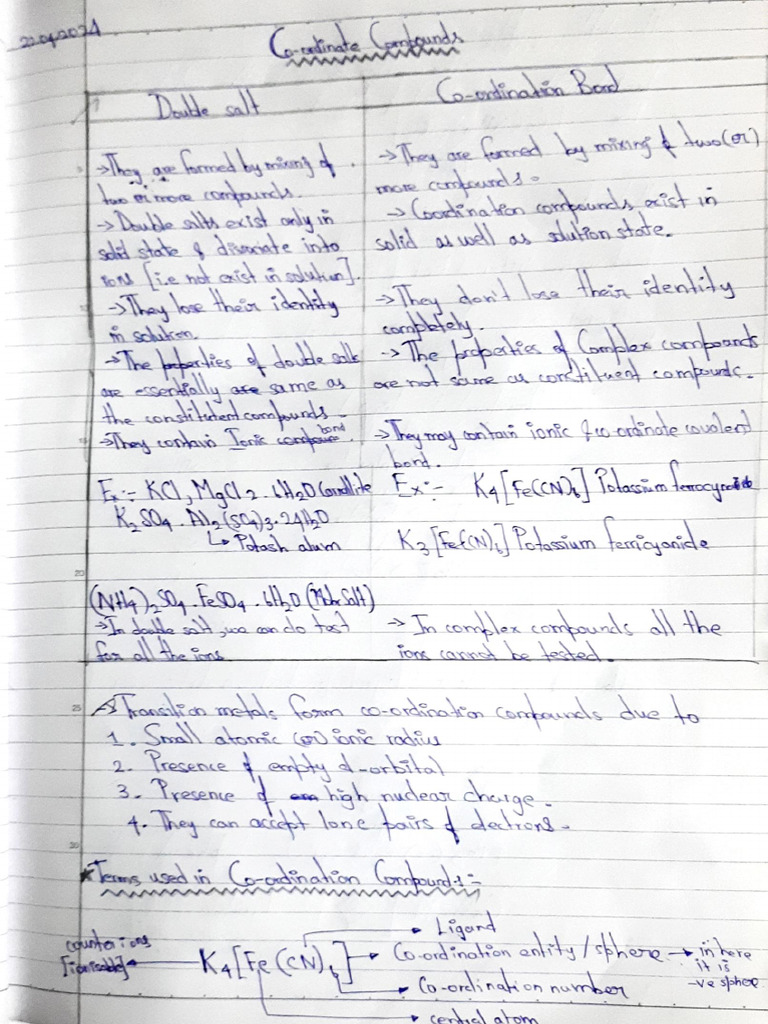 22.04.2024
Co-ordinate Compounds
Double salt
→They are formed by mixing of
two or more compounds.
→Double salts exist only in
solid state & dissociate into
ions [i.e not exist in solution].
→They lose their identity
in solution.
→The properties of double salts
are essentially are same as
the constitutent compounds.
→They contain Ionic bond.
Ex:- KCl, MgCl2. 6H2O Carnallite
K2SO4. Al2(SO4)3.24H2O
↳ Potash alum
(NH4)2SO4.FeSO4.6H2O (Mohr Salt)
→In double salt, we can do test
for all the ions
Co-ordination Bond
→They are formed by mixing of two(or)
more compounds.
→ Coordination compounds exist in
solid as well as solution state.
→They don't lose their identity
completely.
→The properties of Complex compounds
are not same as constituent compounds.
→They may contain ionic & co-ordinate covalent
bond.
Ex:- K4[Fe(CN)6] Potassium ferrocyanide
K3[Fe(CN)6] Potassium ferricyanide
→ In complex compounds all the
ions cannot be tested.
Transition metals form co-ordination compounds due to
1. Small atomic (or) ionic radius
2. Presence of empty d-orbital
3. Presence of high nuclear charge.
4. They can accept lone pairs of electrons.
★Terms used in Co-ordination Compounds:-
counter ions
[ionisable] ← K4[Fe(CN)6]
→ Ligand
→ Co-ordination entity/sphere → in here
it is
-ve sphere
→ Co-ordination number
→ central atom